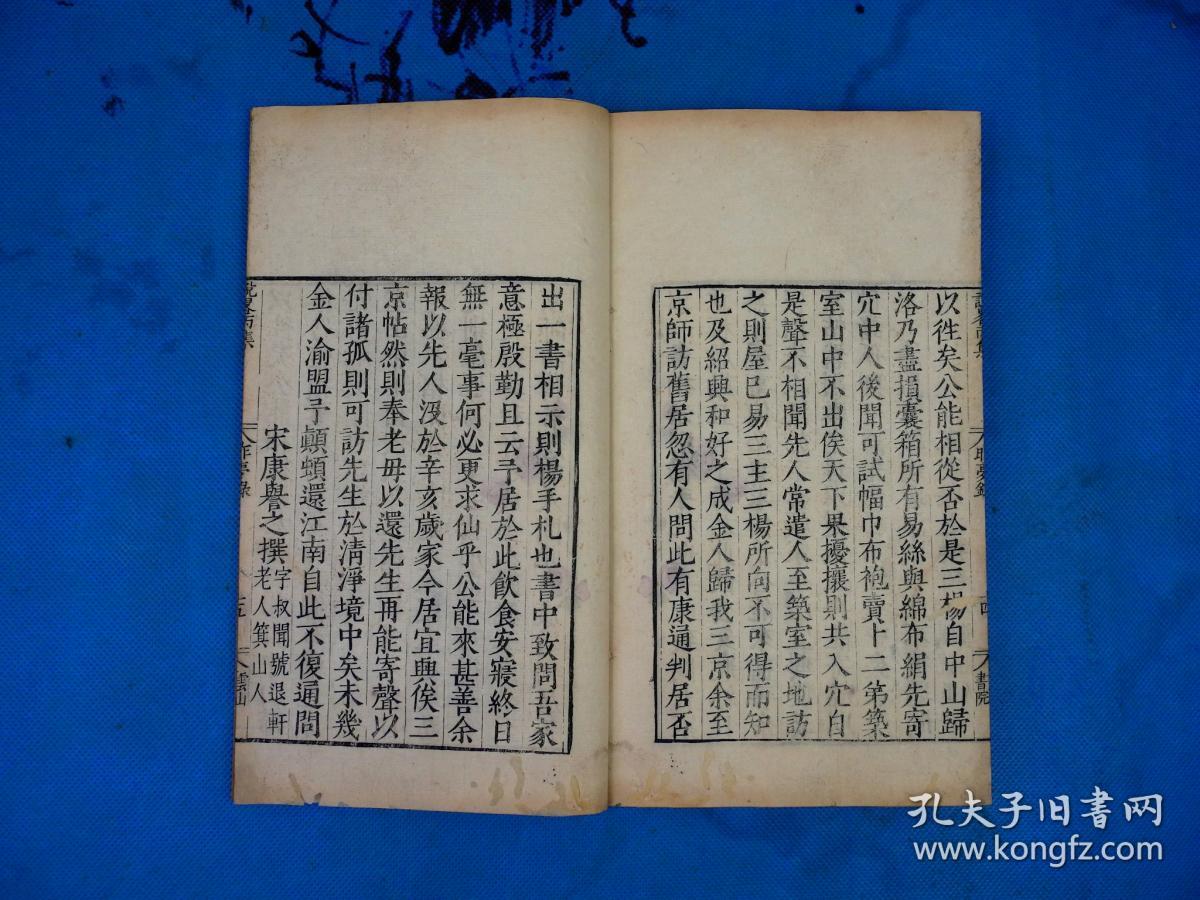 以徃矣公能相從否於是三楊自中山歸
洛乃盡損囊箱所有易絲與綿布絹先寄
穴中人後聞可試幅巾布袍賣卜二第築
室山中不出俟天下果擾攘則共入穴自
是聲不相聞先人常遣人至築室之地訪
之則屋已易三主三楊所向不可得而知
也及紹興和好之成金人歸我三京余至
京師訪舊居忽有人問此有康通判居否
出一書相示則楊手札也書中致問吾家
意極殷勤且云予居於此飲食安寢終日
無一毫事何必更求仙乎公能來甚善余
報以先人沒於辛亥歲家今居宜興俟三
京帖然則奉老毋以還先生再能寄聲以
付諸孤則可訪先生於清淨境中矣未幾
金人渝盟予顛頓還江南自此不復通問
宋康譽之撰 字叔聞號退軒
老人箕山人
昨夢錄
四
書院
昨夢錄
五
雲山
孔夫子旧書网
www.kongfz.com